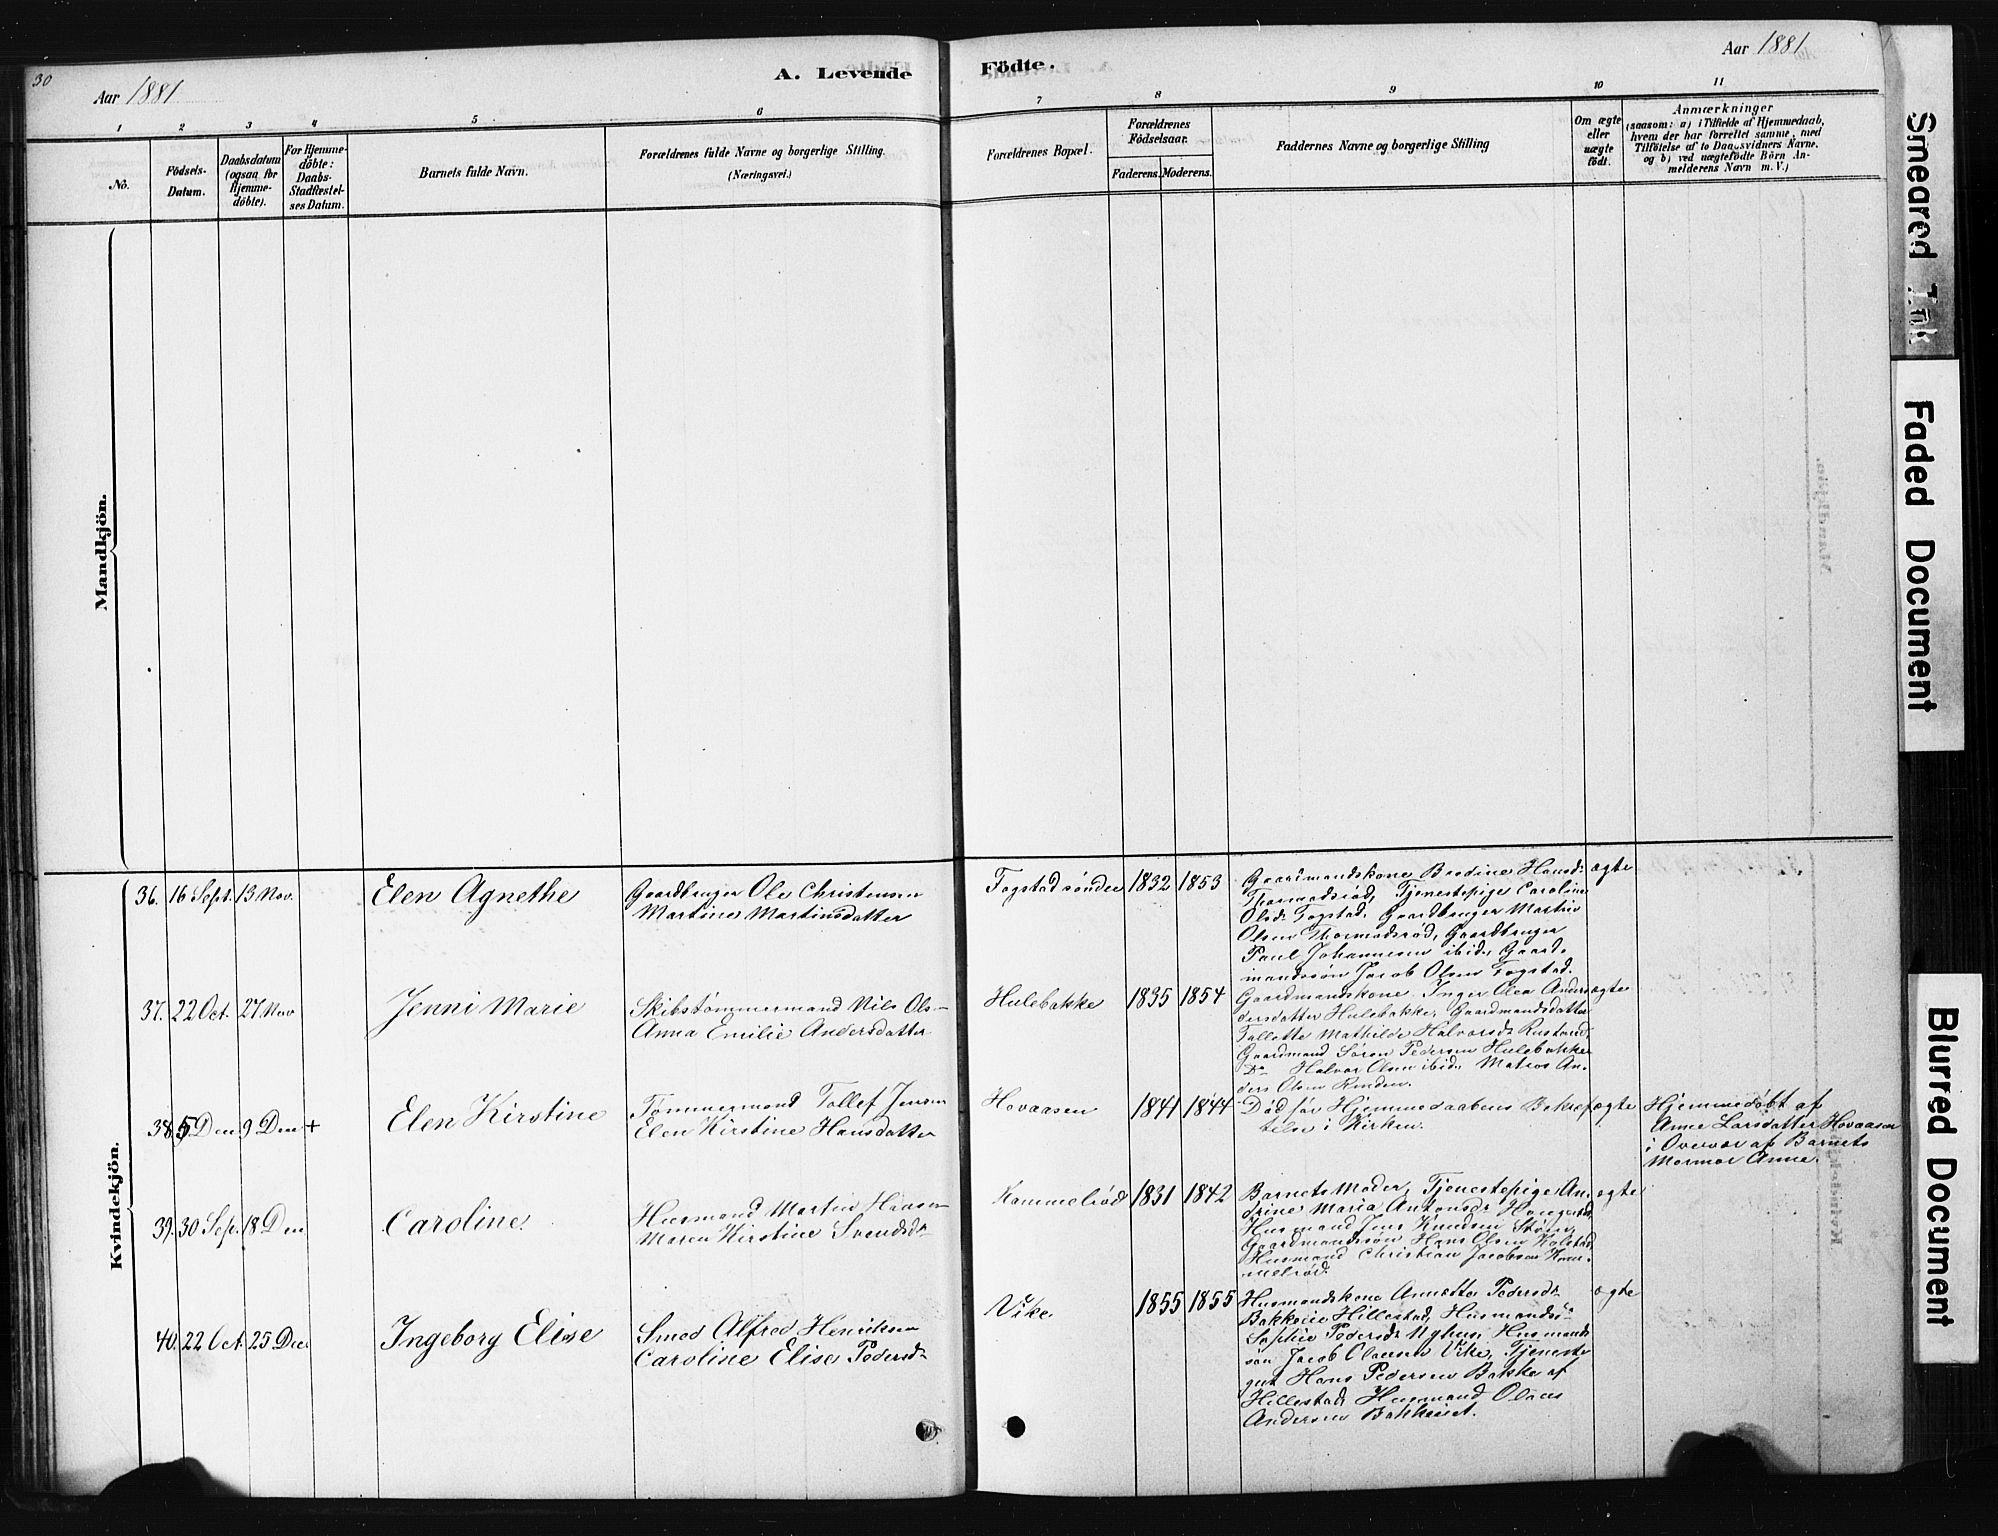 30
Aar 1881
A. Levende
Födte.
Aar 1881
1 2 3 4 5 6 7 8 9 10 11
No.
Födsels-
Datum.
Daabsdatum
(ogsaa for
Hjemme-
döbte).
For Hjemme-
döbte:
Daabs-
Stadfæstel-
ses Datum.
Barnets fulde Navn.
Forældrenes fulde Navne og borgerlige Stilling.
(Næringsvei.)
Forældrenes Bopæl.
Forældrenes
Födselsaar.
Faderens. Moderens.
Faddernes Navne og borgerlige Stilling
Om ægte
eller
uægte
födt.
Anmærkninger
(saasom: a) i Tilfælde af Hjemmedaab,
hvem der har forrettet samme, med
Tilföielse af to Daabsvidners Navne,
og b) ved uægtefödte Börn An-
melderens Navn m. V.)
Mandkjön.
Kvindekjön.
36. 16 Sept. 13 Nov.
Elen Agnethe
Gaardbruger Ole Christensen
Martine Martinsdatter
Fogstad søndre
1832 1853
Gaardmandskone Bredine Hansd:
Thormodsrød, Tjenestepige Caroline
Olsd: Fogstad, Gaardbruger Martin
Olsen Thormodsrød, Gaardbruger
Paul Johannesen ibid, Gaard-
mandssøn Jacob Olsen Fogstad.
ægte
37. 22 Oct. 27 Nov
Jenni Marie
Skibstømmermand Nils Ols-
Anna Emilie Andersdatter
Hulebakke
1835 1854
Gaardmandskone Inger Olea Anders
dersdatter Hulebakke, Gaardmandsdatter
Mathilde Halvorsd:
Gaardmand Søren Pedersen Hulebakke
Do Halvor Olsen ibid, Matros An-
ders Olsen
ægte
38. 5 Dec. 9 Dec +
Elen Kirstine
Tømmermand Tollef Jensen
Elen Kirstine Hansdatter
Hovaasen
1841 1844
Død før Hjemmedaabens Bekræf-
telse i Kirken.
ægte
Hjemmedøbt af
Anne Larsdatter Hovaasen
i Overvær af Barnets
Mormor Anne.
39. 30 Sep. 18 Dec
Caroline.
Husmand Martin Hansen
Maren Kirstine Svendsd:
Kammelrød
1831 1842
Barnets Moder, Tjenestepige An-
drine Maria Antonsd:
Husmand Jens Knudsen
Gaardmandssøn Hans Olsen Kolstad,
Husmand Christian Jacobsen Kam-
melrød.
ægte
40. 22 Oct. 25 Dec
Ingeborg Elise
Smed Alfred Henriksen
Caroline Elise Pedersd:
Vike.
1855 1855
Husmandskone Annette Pedersd:
Bakkeie Hillestad, Husmandsd:
Sophie Pedersd: Myhre, Husmands
søn Jacob Olaussen Vike, Tjeneste
gut Hans Pedersen Bakke af
Hillestad, Husmand Olaus
Andersen Bakkeiet.
ægte
Smeared Ink
Faded Document
Blurred Document